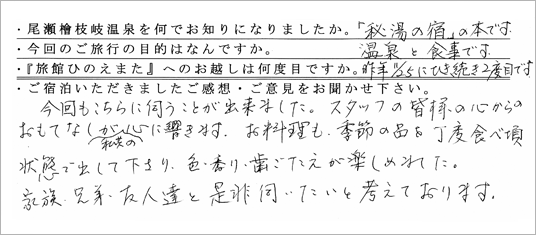 ・尾瀬檜枝岐温泉を何でお知りになりましたか。「秘湯の宿」の本です
・今回のご旅行の目的はなんですか。 温泉と食事です
・『旅館ひのえまた』へのお越しは何度目ですか。昨年11/25にひき続き2度目です
・ご宿泊いただきましたご感想・ご意見をお聞かせ下さい。
今回もこちらに伺うことが出来ました。スタッフの皆様の心からの
おもてなしが私共の心に響きます。お料理も、季節の品を丁度食べ頃
状態で出して下さり、色・香り・歯ごたえが楽しめれた。
家族、兄弟、友人達と是非伺いたいと考えております。